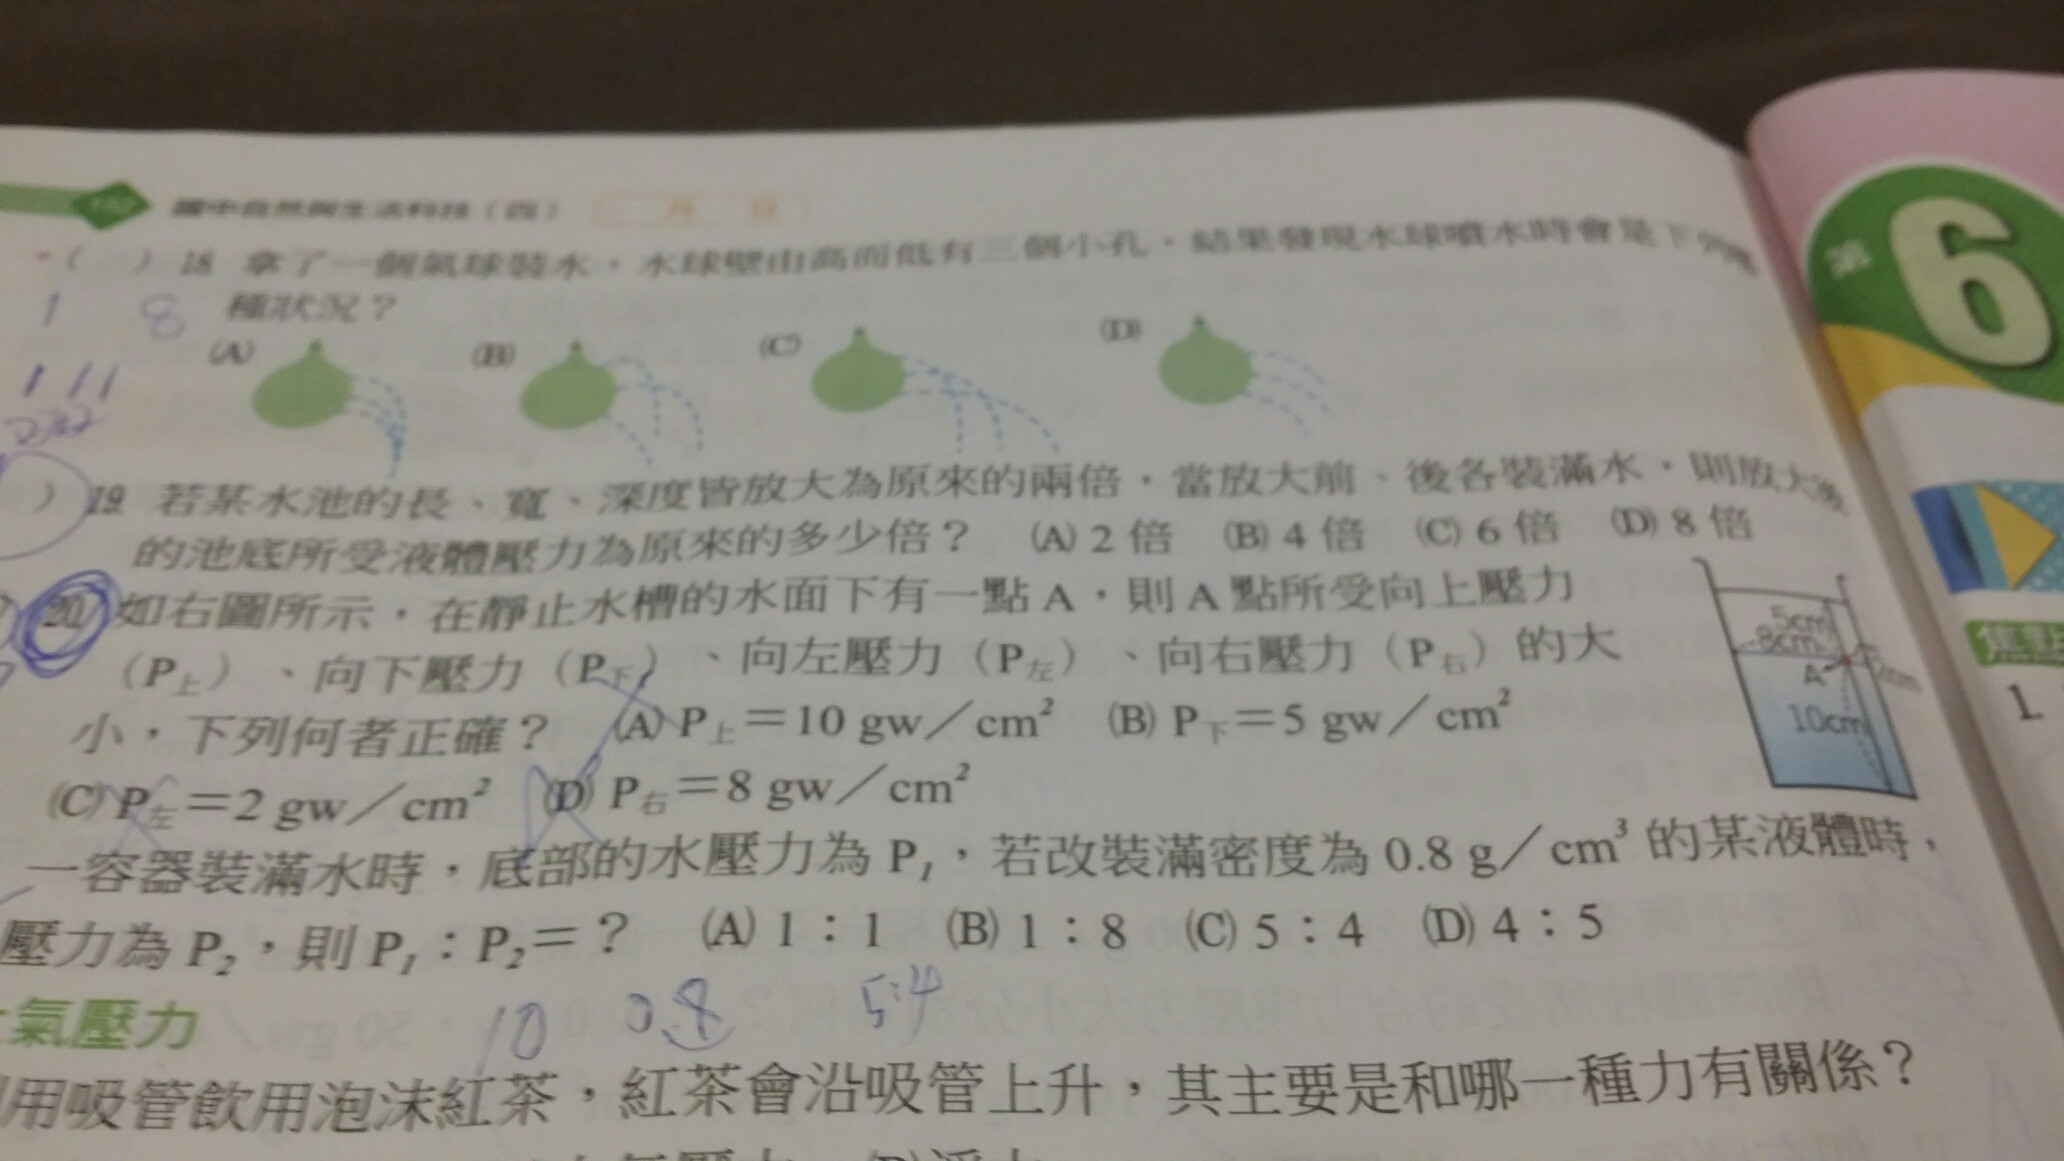 國中自然與生活科技(四) 月 日
( ) 18 拿了一個氣球裝水,水球壁由高而低有三個小孔,結果發現水球噴水時會是下列
種狀況?
1 8
(A) (B) (C) (D)
) 19 若某水池的長、寬、深度皆放大為原來的兩倍,當放大前、後各裝滿水,則放大後
的池底所受液體壓力為原來的多少倍? (A) 2 倍 (B) 4 倍 (C) 6 倍 (D) 8 倍
20 如右圖所示,在靜止水槽的水面下有一點 A,則 A 點所受向上壓力
(P上)、向下壓力(P下)、向左壓力(P左)、向右壓力(P右)的大
小,下列何者正確? (A) P上=10 gw/cm² (B) P下=5 gw/cm²
(C) P左=2 gw/cm² (D) P右=8 gw/cm²
5cm
8cm
A
10cm
一容器裝滿水時,底部的水壓力為 P₁,若改裝滿密度為 0.8 g/cm³ 的某液體時,
壓力為 P₂,則 P₁:P₂=? (A) 1:1 (B) 1:8 (C) 5:4 (D) 4:5
10 0.8 5:4
氣壓力
用吸管飲用泡沫紅茶,紅茶會沿吸管上升,其主要是和哪一種力有關係?
第 6
1.